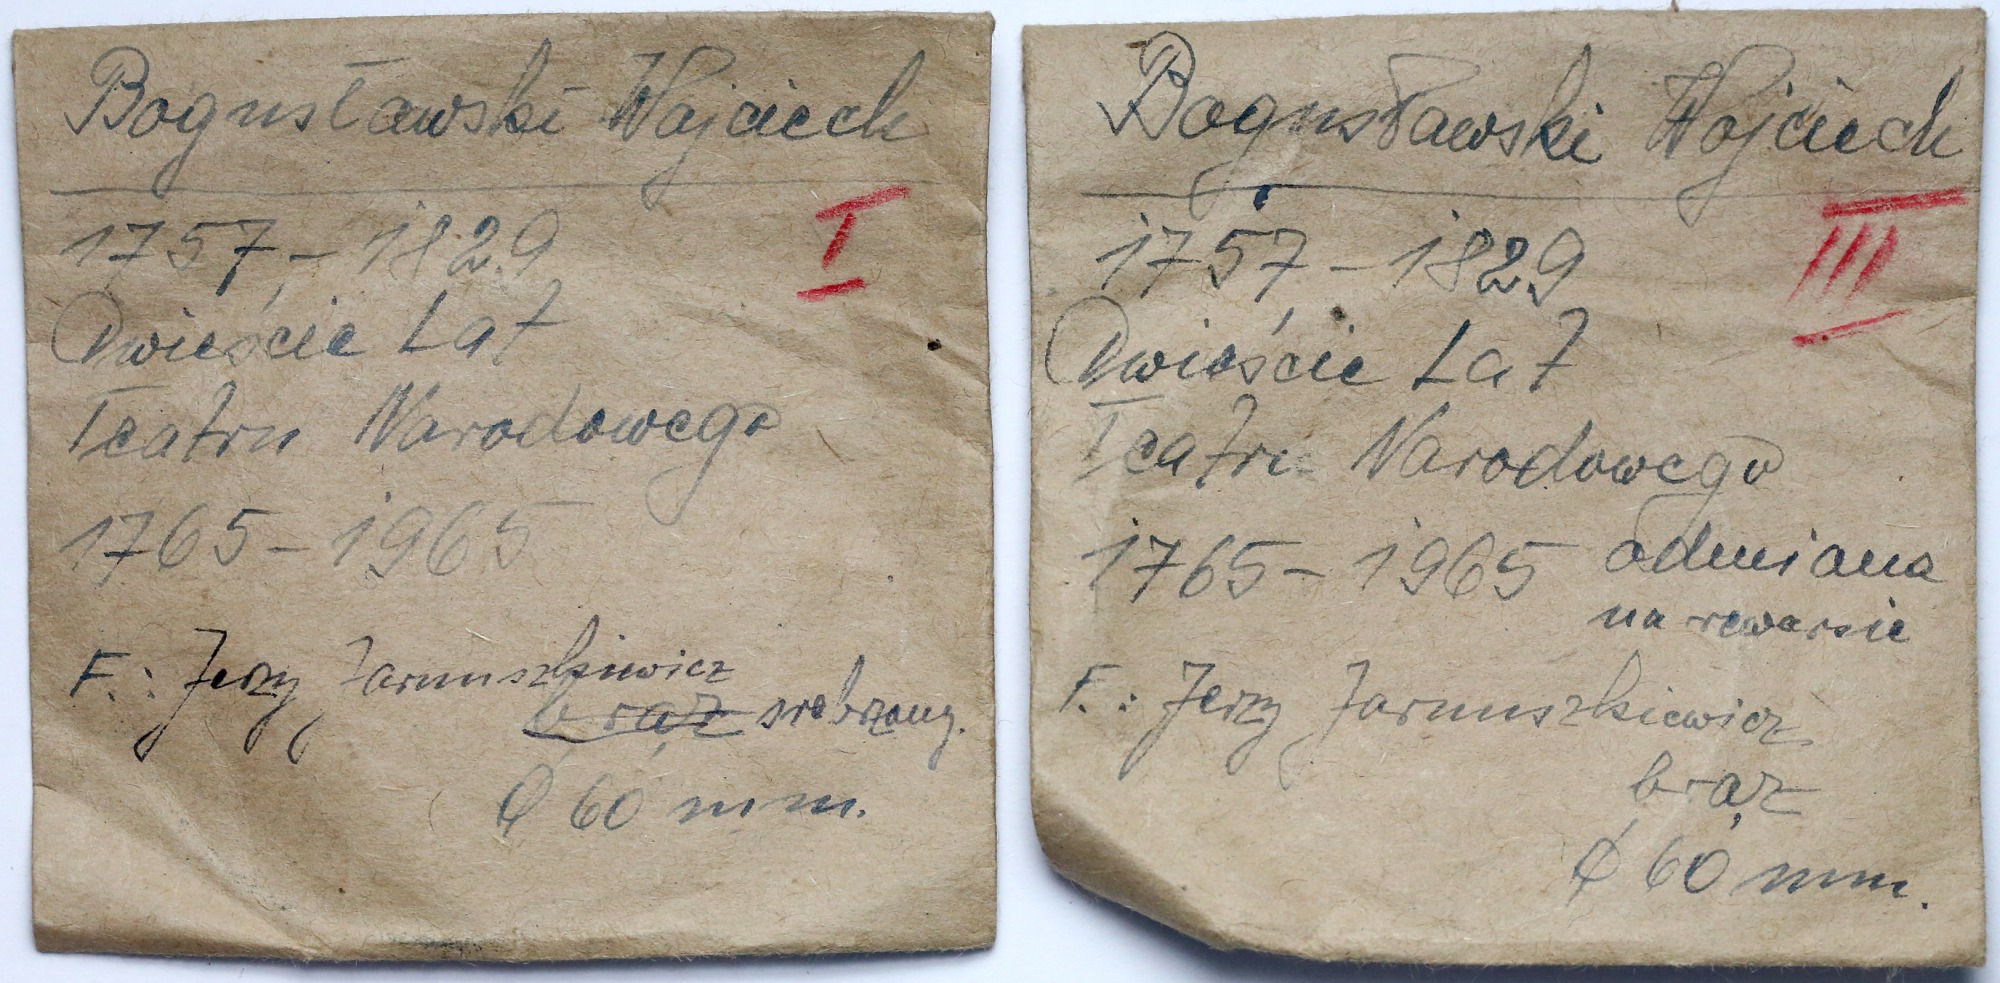 Bogusławski Wojciech
I
1757 – 1829
Dwieście Lat
Teatru Narodowego
1765 – 1965
F.: Jerzy Jarnuszkiewicz
brąz srebrzony.
Ø 60 mm.
Bogusławski Wojciech
III
1757 – 1829
Dwieście Lat
Teatru Narodowego
1765 – 1965 odmiana
na rewersie
F.: Jerzy Jarnuszkiewicz
brąz
Ø 60 mm.